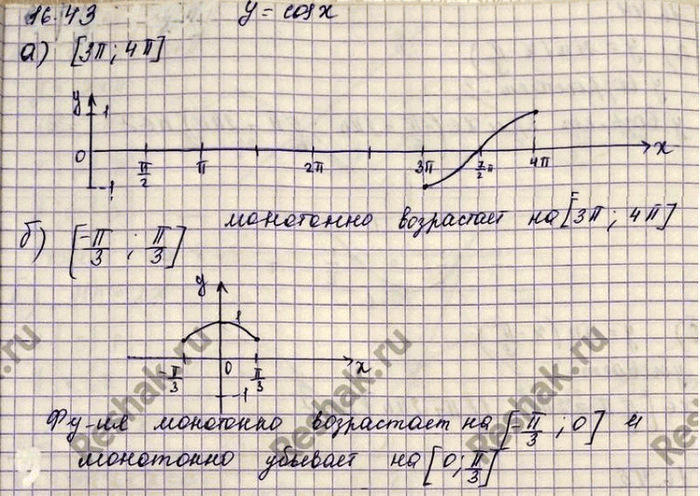 16.43 y = cos x
а) [3π; 4π]
y
1
0 π/2 π 2π 3π 7/2 π 4π x
-1
монотонно возрастает на [3π; 4π]
б) [-π/3; π/3]
y
1
-π/3 0 π/3 x
-1
Фу-ия монотонно возрастает на [-π/3; 0] и
монотонно убывает на [0; π/3]
Reshak.ru
Reshak.ru
Reshak.ru